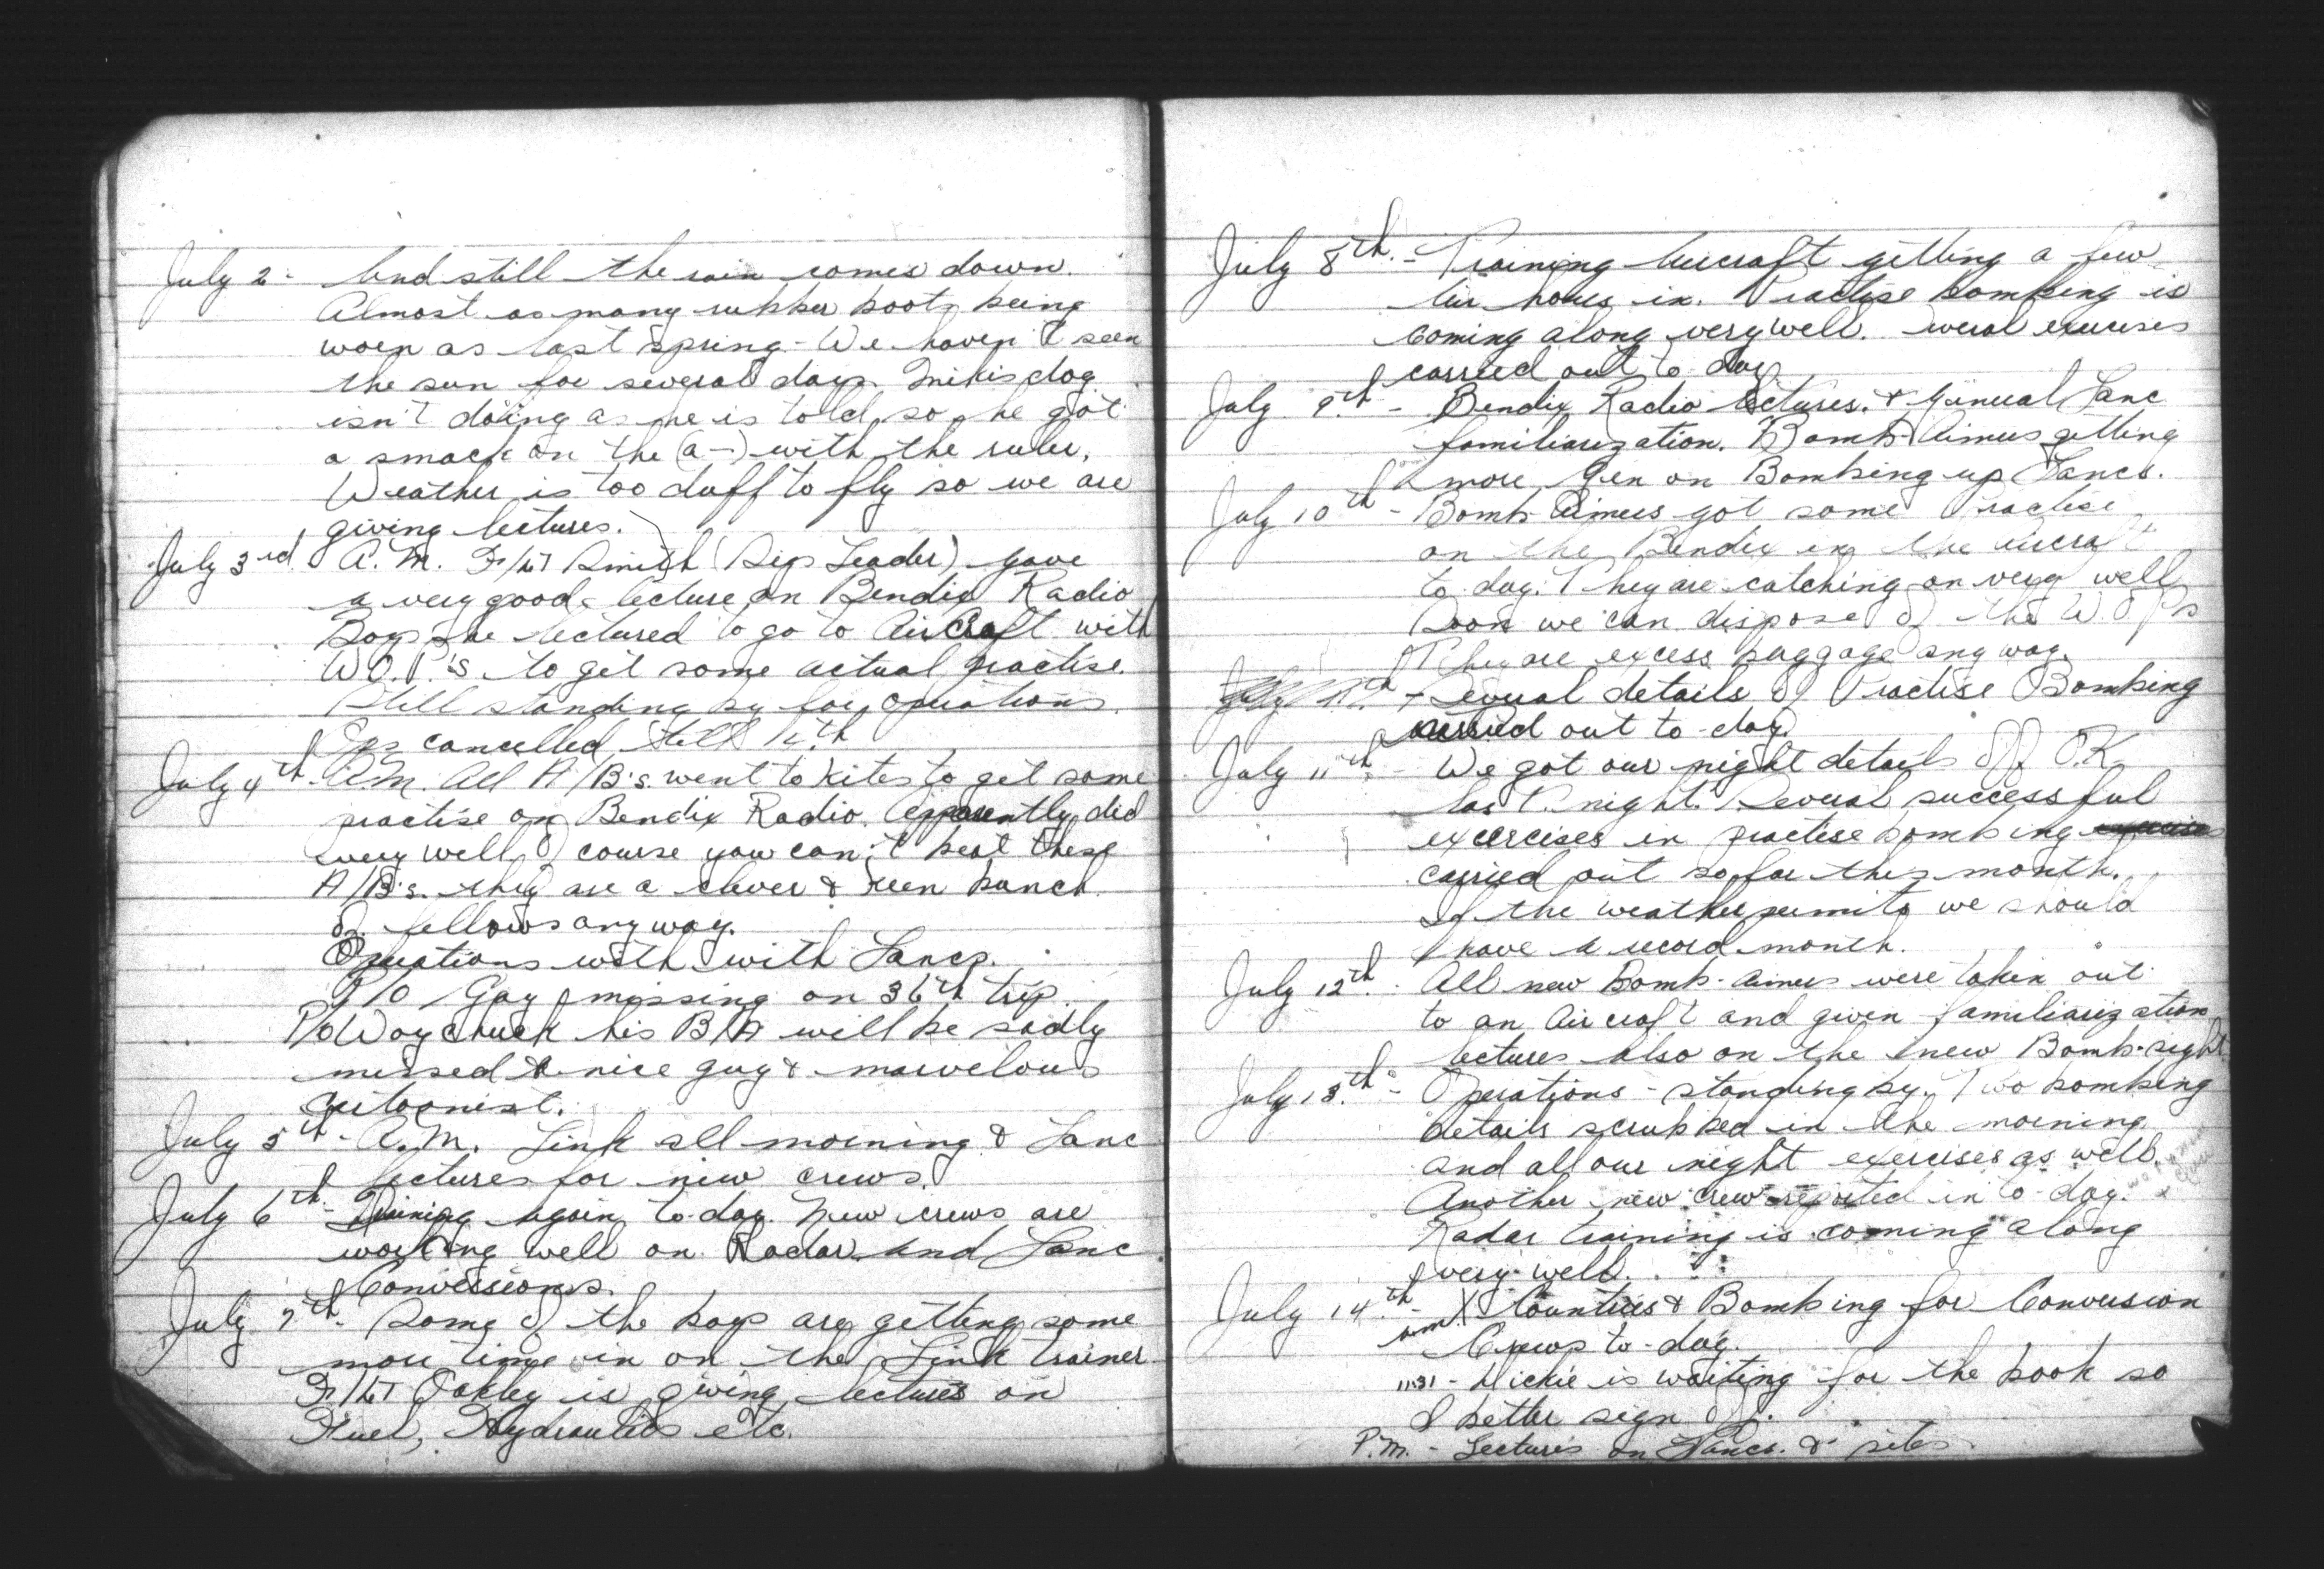 July 2 - And still the rain comes down.
Almost as many rubber boots being
worn as last Spring - We haven't seen
the sun for several days. Mikis dog
isn't doing as he is told, so he got
a smack on the (a-) with the ruler.
Weather is too duff to fly so we are
giving lectures.
July 3rd A.M. F/Lt Smith (Sigs Leader) gave
a very good lecture on Bendix Radio
Boys he lectured to go to Aircraft with
W.O.P.'s to get some actual practise.
Still standing by for operations.
Ops cancelled
July 4th A.M. All A/B's. went to kites to get some
practise on Bendix Radio. Apparently did
very well, of course you can't beat these
A/B's. they are a clever & keen bunch
of fellows any way.
Operations with with Lancs.
P/O Gay missing on 36th trip.
P/O Waychuck his B/A will be sadly
missed a nice guy & marvelous
cartoonist.
July 5th - A.M. Link all morning & Lanc
lectures for new crews.
July 6th - Training again to-day. New crews are
working well on Radar and Lanc
Conversions.
July 7th - Some of the boys are getting some
more time in on the Link trainer
F/Lt Oakley is giving lectures on
Fuel, Hydraulics etc.
July 8th. - Training Aircraft getting a few
Air hours in. Practise bombing is
coming along very well. Several exercises
carried out to-day
July 9th - Bendix Radio lectures, & general Lanc
familiarization. Bomb-Aimers getting
more Gen on Bombing up Lancs.
July 10th - Bomb Aimers got some Practise
on the Bendix in the aircraft
to-day. They are catching on very well
Soon we can dispose of the W.O.P's
They are excess baggage any way.
- Several details of Practise Bombing
carried out to-day.
July 11th - We got our night details off O.K.
last night. Several successful
excercises in practise bombing
carried out so far this month.
If the weather permits we should
have a record month.
July 12th. - All new Bomb-Aimers were taken out
to an Aircraft and given familiarization
lectures also on the new Bomb-sight
July 13th - Operations - standing by. Two bombing
details scrubbed in the morning
and all our night exercises as well.
Another new crew reported in to-day.
Radar training is coming along
very well.
July 14th - X Countries & Bombing for Conversion
A.M. Crews to-day.
11:31 - Dickie is waiting for the book so
I better sign off.
P.M. - Lectures on Lancs. &